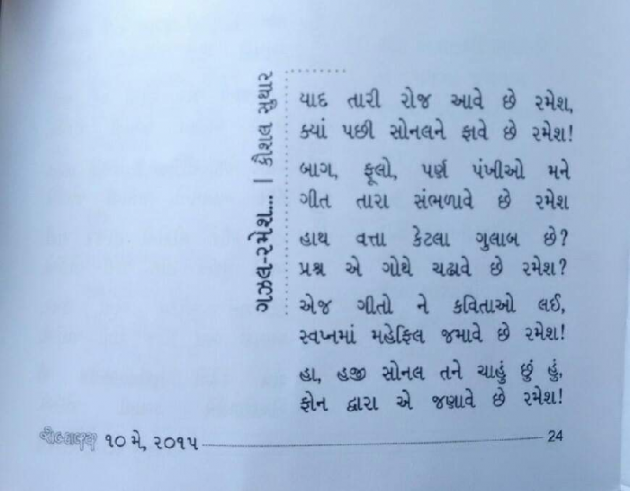 ગઝલ-રમેશ... | કૌશલ સુથાર
યાદ તારી રોજ આવે છે રમેશ,
ક્યાં પછી સોનલને ફાવે છે રમેશ!
બાગ, ફૂલો, પર્ણ પંખીઓ મને
ગીત તારા સંભળાવે છે રમેશ
હાથ વત્તા કેટલા ગુલાબ છે?
પ્રશ્ન એ ગોથે ચઢાવે છે રમેશ?
એજ ગીતો ને કવિતાઓ લઈ,
સ્વપ્નમાં મહેફિલ જમાવે છે રમેશ!
હા, હજી સોનલ તને ચાહું છું હું,
ફોન દ્વારા એ જણાવે છે રમેશ!
૧૦ મે, ૨૦૧૫ 24